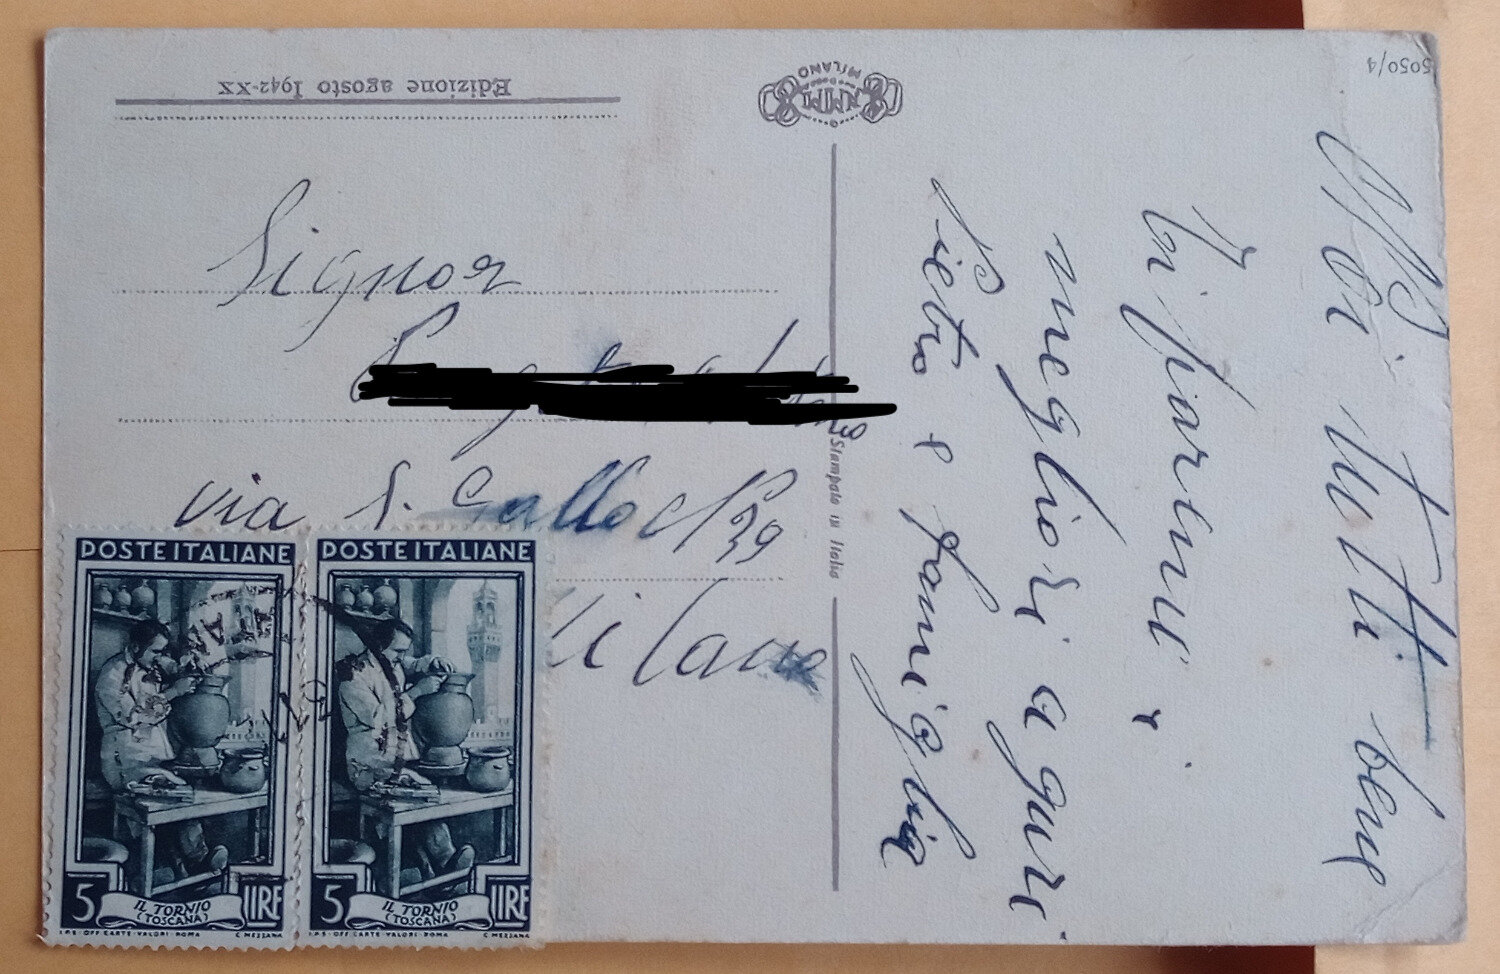 Edizione agosto 1942-XX
NMM
MILANO
5050/4
Signor
via S. Gallo 39
Milano
Stampato in Italia
Noi tutti bene
Vi
migliori auguri
Pietro e famiglia
POSTE ITALIANE
5 LIRE
IL TORNIO
(TOSCANA)
I.P.S. OFF. CARTE VALORI ROMA
C. MEZZANA
POSTE ITALIANE
5 LIRE
IL TORNIO
(TOSCANA)
I.P.S. OFF. CARTE VALORI ROMA
C. MEZZANA